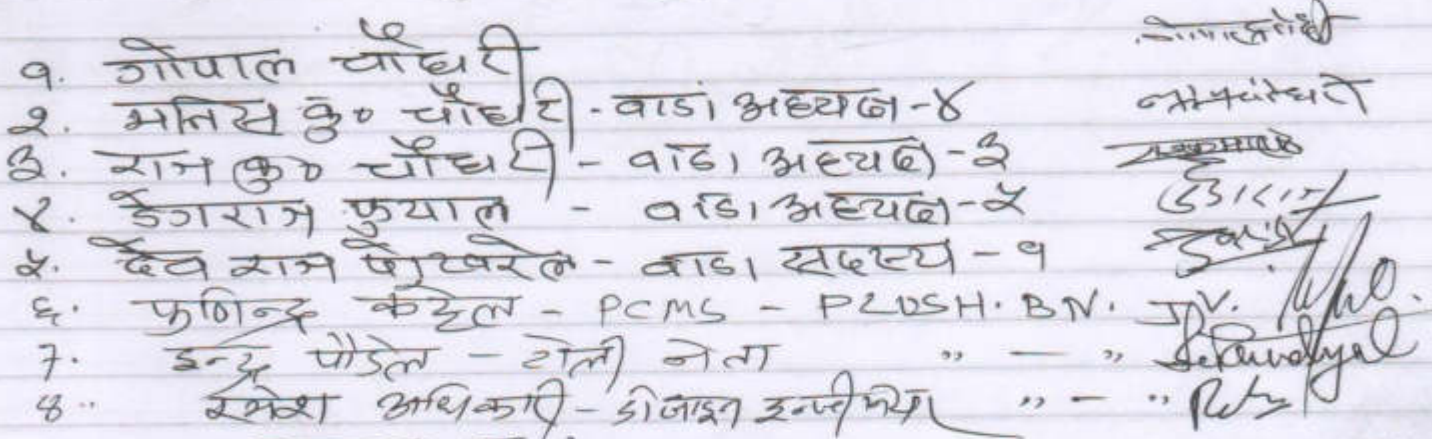 १. गोपाल चौधरी
२. मनिस कु० चौधरी - वाडा अध्यक्ष - ४
३. राज कु० चौधरी - वाडा अध्यक्ष - ३
४. डेगराज फुयाल - वाडा अध्यक्ष - ५
५. देव राज पोखरेल - वाडा सदस्य - १
६. फणिन्द्र कट्टेल - PCMS - PLUSH. BN. JV.
7. इन्द्र पौडेल - टोली नेता " — "
8.. रमेश अधिकारी - डीजाइन इन्जीनियर " — "